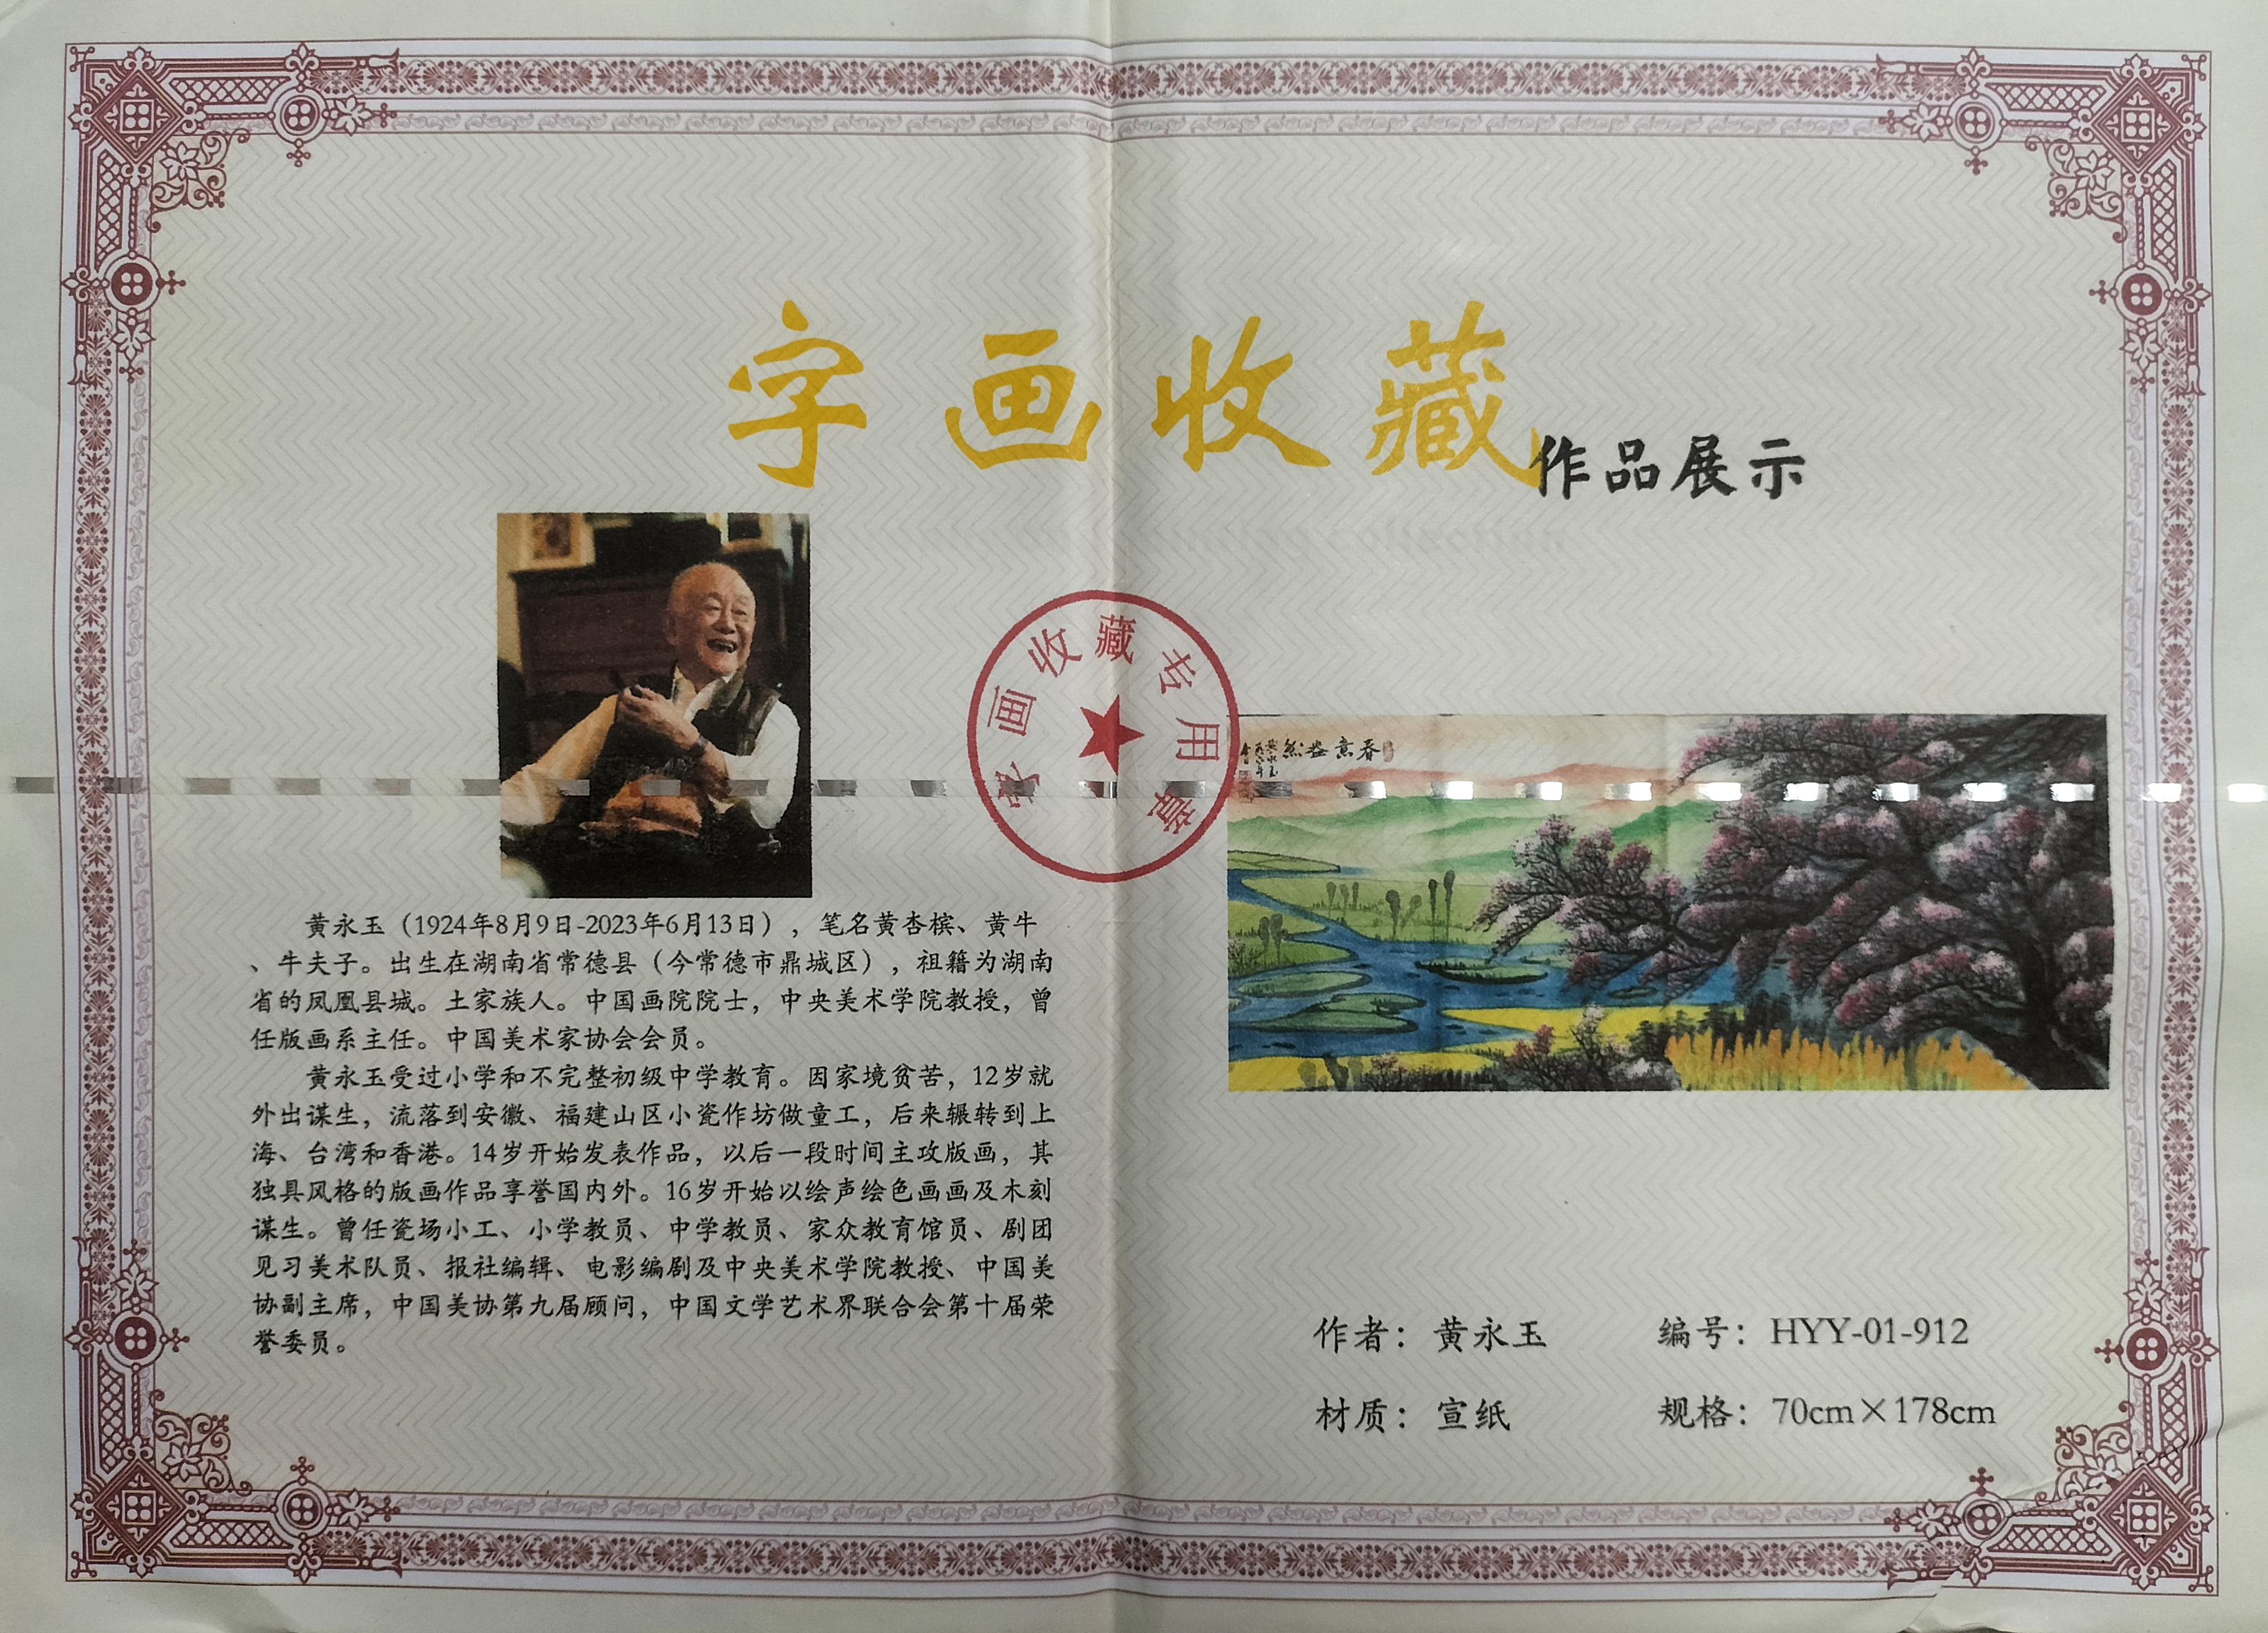 字画收藏
作品展示
字画收藏专用章
春意盎然
黄永玉(1924年8月9日-2023年6月13日),笔名黄杏槟、黄牛
、牛夫子。出生在湖南省常德县(今常德市鼎城区),祖籍为湖南
省的凤凰县城。土家族人。中国画院院士,中央美术学院教授,曾
任版画系主任。中国美术家协会会员。
黄永玉受过小学和不完整初级中学教育。因家境贫苦,12岁就
外出谋生,流落到安徽、福建山区小瓷作坊做童工,后来辗转到上
海、台湾和香港。14岁开始发表作品,以后一段时间主攻版画,其
独具风格的版画作品享誉国内外。16岁开始以绘声绘色画画及木刻
谋生。曾任瓷场小工、小学教员、中学教员、家众教育馆员、剧团
见习美术队员、报社编辑、电影编剧及中央美术学院教授、中国美
协副主席,中国美协第九届顾问,中国文学艺术界联合会第十届荣
誉委员。
作者：黄永玉
编号：HYY-01-912
材质：宣纸
规格：70cm×178cm